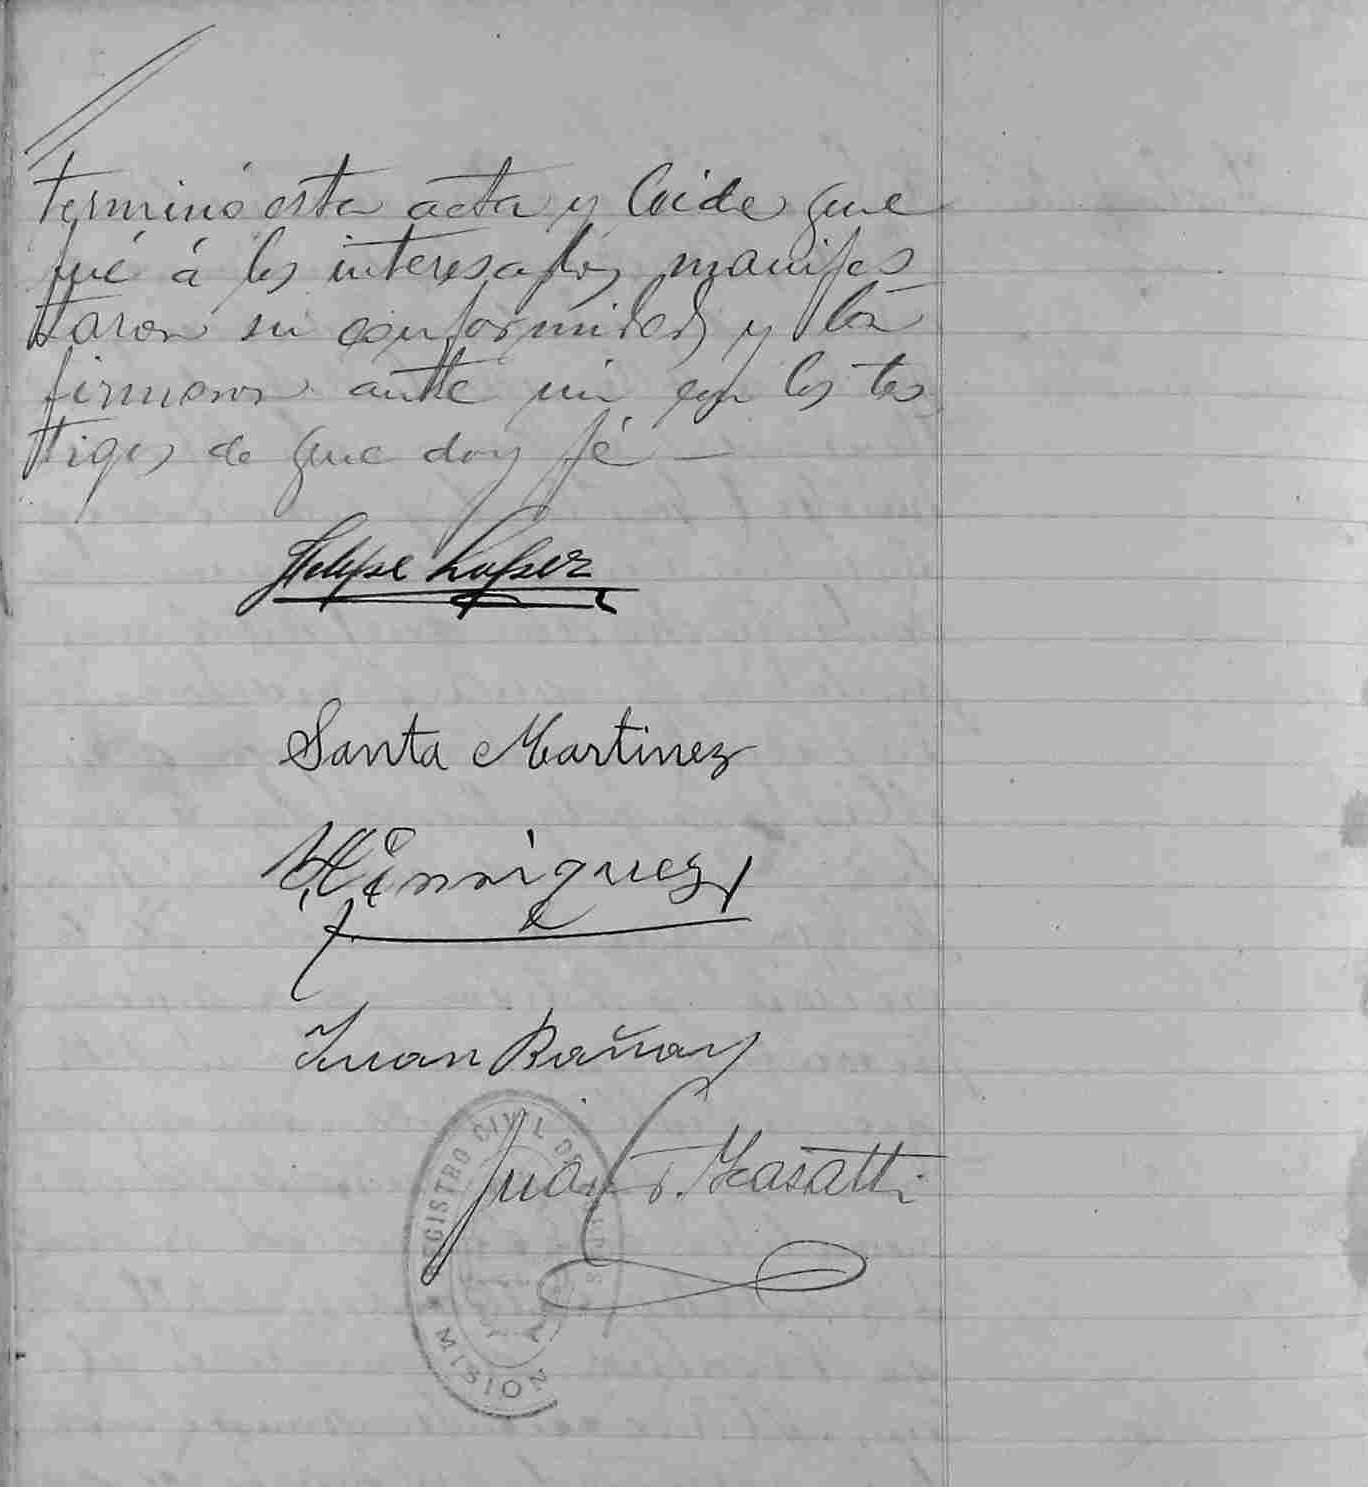 terminó esta acta y leida que
fué á los interesados manifes
taron su conformidad y la
firmaron ante mi con los tes
tigos de que doy fé —
Felipe Lopez
Santa Martinez
Enriquez
Juan
Juan F. Masatti
REGISTRO CIVIL DE
MISION